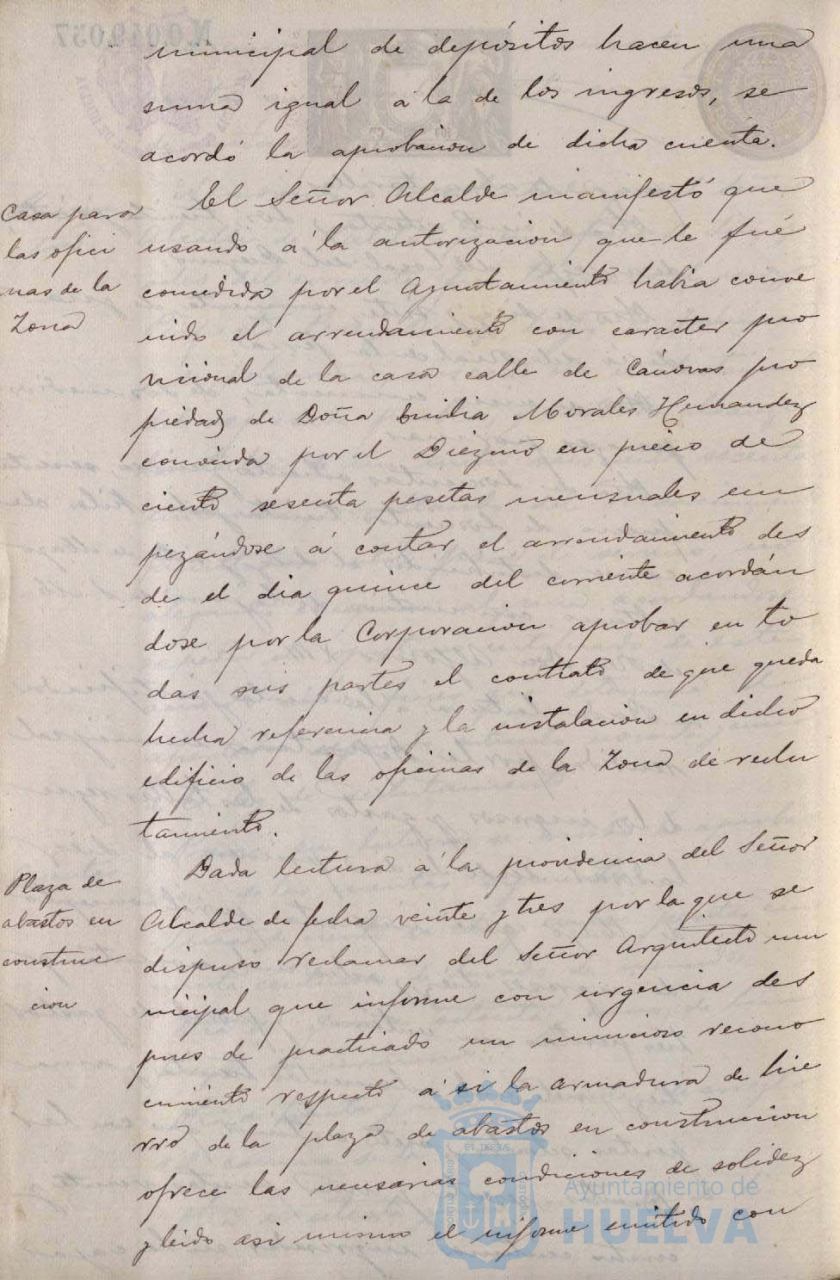 municipal de depósitos hacen una
suma igual á la de los ingresos, se
acordó la aprobacion de dicha cuenta.
Casa para
las ofici
nas de la
Zona
El Señor Alcalde manifestó que
usando á la autorizacion que le fué
concedida por el Ayuntamiento habia conve
nido el arrendamiento con caracter pro
visional de la casa calle de Cánovas pro
piedad de Doña Emilia Morales Hernandez
conocida por el Diezmo en precio de
ciento sesenta pesetas mensuales em
pezándose á contar el arrendamiento des
de el dia quince del corriente acordán
dose por la Corporacion aprobar en to
das sus partes el contrato de que queda
hecha referencia y la instalacion en dicho
edificio de las oficinas de la Zona de reclu
tamiento.
Plaza de
abastos en
construc
cion
Dada lectura á la providencia del Señor
Alcalde de fecha veinte y tres por la que se
dispuso reclamar del Señor Arquitecto mu
nicipal que informe con urgencia des
pues de practicado un minucioso recono
cimiento respecto á si la armadura de hie
rro de la plaza de abastos en construccion
ofrece las necesarias condiciones de solidez
y leido asi mismo el informe emitido con
Ayuntamiento de
HUELVA